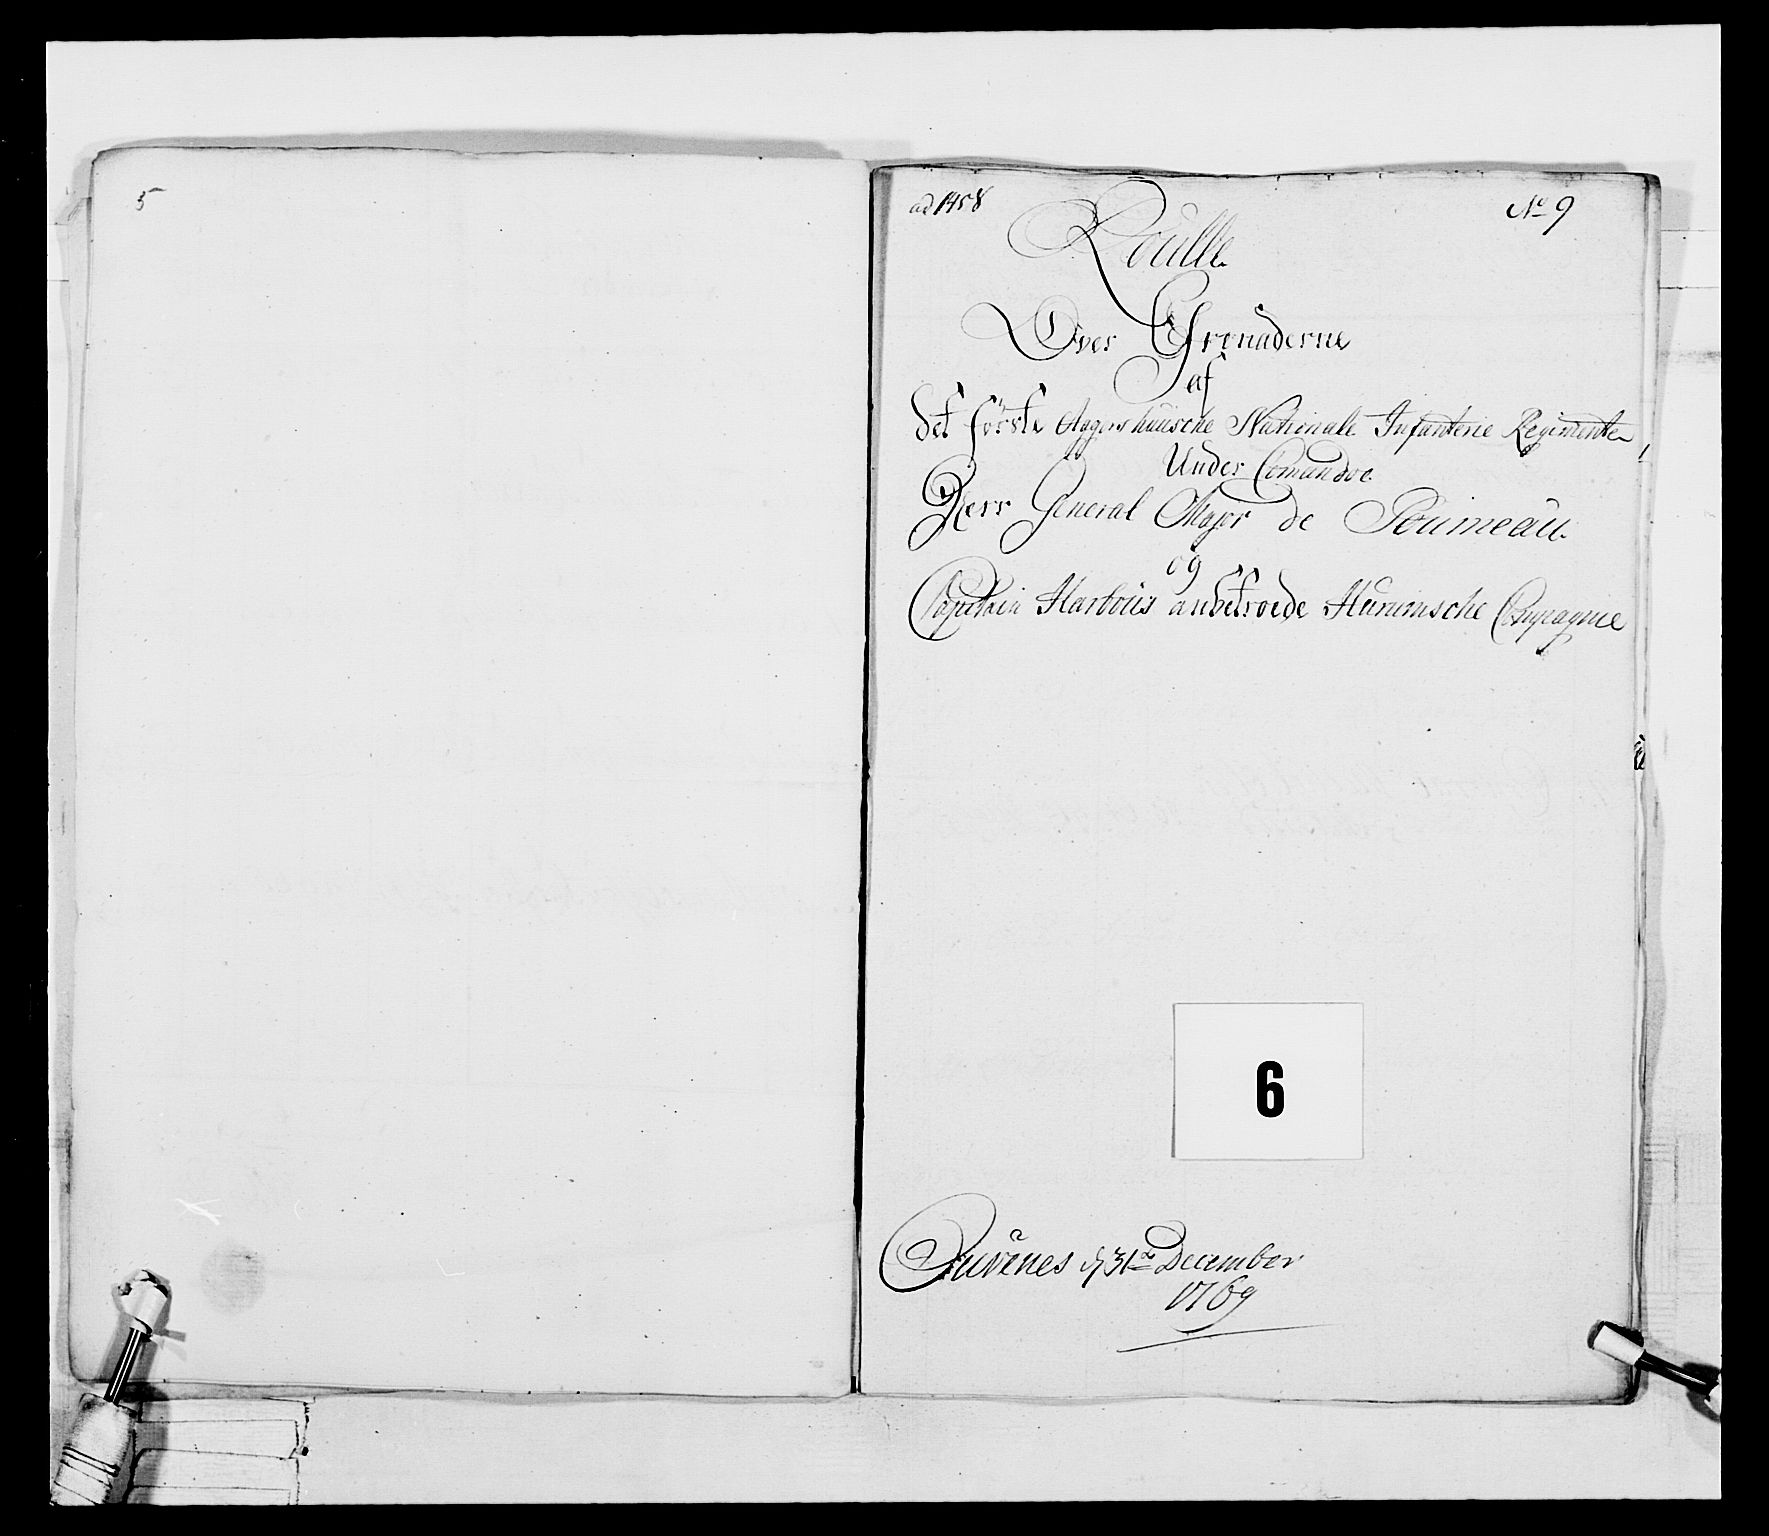 5
ad 1458
No 9
Roulle
Over Grenaderne
af
det förste Aggershuusche Nationale Infanterie Regimente
Under Comandoe
Herr General Major de Poumeau
og
Capitain Harbou's anbetroede Hurumsche Compagnie
6
d 31te December
1769